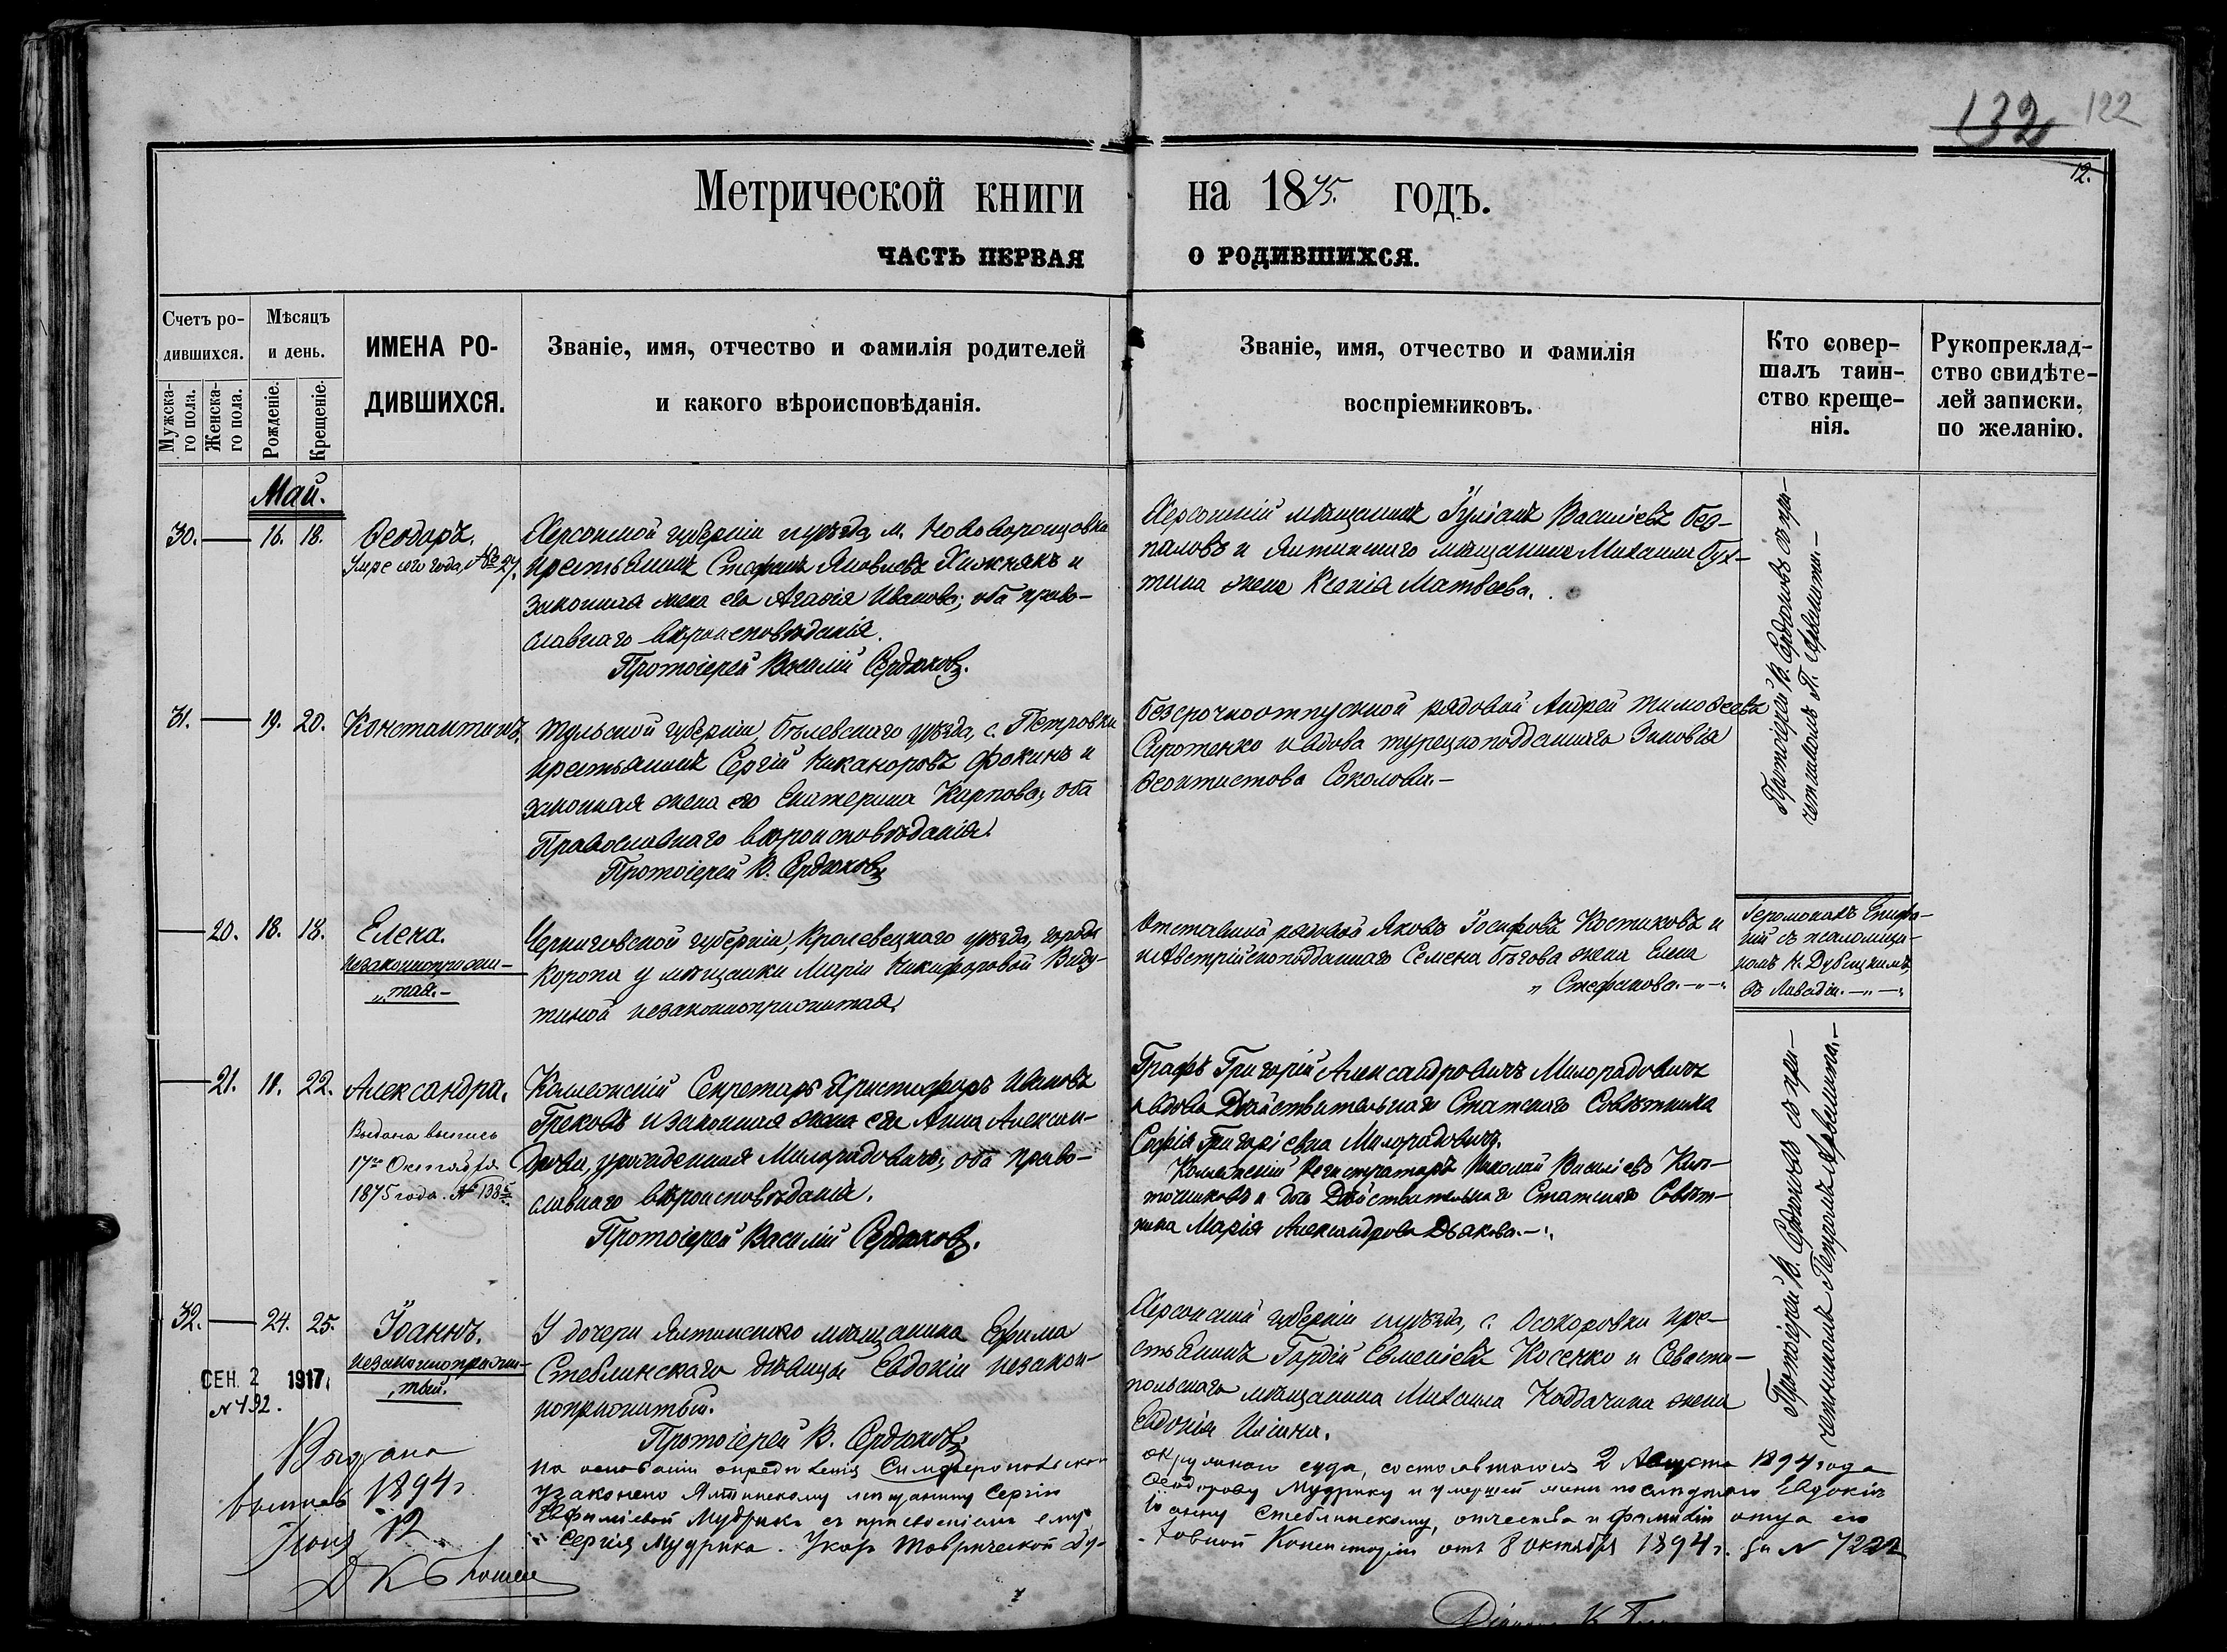 132 122
12.
Метрической книги на 1875. годъ.
ЧАСТЬ ПЕРВАЯ О РОДИВШИХСЯ.
Счетъ ро-
дившихся.
Мужска-
го пола.
Женска-
го пола.
Мѣсяцъ
и день.
Рожденіе.
Крещеніе.
ИМЕНА РО-
ДИВШИХСЯ.
Званіе, имя, отчество и фамилія родителей
и какого вѣроисповѣданія.
Званіе, имя, отчество и фамилія
воспріемниковъ.
Кто совер-
шалъ таин-
ство креще-
нія.
Рукопреклад-
ство свидѣте-
лей записки,
по желанію.
Май.
30. 16. 18. Ѳеодоръ.
Умре сего года, № 27.
Херсонской губерніи и уѣзда, м. Нововоронцовки
крестьянинъ Стефанъ Яковлевъ Хижнякъ и
законная жена его Агафія Иванова; оба право-
славнаго вѣроисповѣданія.
Протоіерей Василій Сердюковъ.
Херсонскій мѣщанинъ Іуліанъ Васильевъ Без-
паловъ и Ялтинскаго мѣщанина Михаила Бух-
тина жена Ксенія Матвѣева.
Протоіерей В. Сердюковъ съ при-
четникомъ П.
31. 19. 20. Константинъ.
Тульской губерніи, Бѣлевскаго уѣзда, с. Петровки
крестьянинъ Сергій Никаноровъ Фокинъ и
законная жена его Екатерина Карпова; оба
Православнаго вѣроисповѣданія.
Протоіерей В. Сердюковъ
Безсрочноотпускной рядовой Андрей Тимоѳеевъ
Сиротенко и вдова турецкоподданнаго Зиновія
Ѳеоктистова Соколова.—
20. 18. 18. Елена.
незаконнорожден-
„ная.—
Черниговской губерніи, Кролевецкаго уѣзда, города
Коропа у мѣщанки Маріи Никифоровой
незаконноприжитая
Отставной рядовой Яковъ Іосифовъ Костиковъ и
и Австрійскоподданнаго Семена Бѣгова жена Елена
„ Стефанова.—„—„
Іеромонахъ Епифа-
ній съ псаломщи-
комъ Н. Дубицкимъ,
въ Ливадіи.—„—„
21. 18. 22. Александра.
Выдана выпись
17го Октября
1875 года. № 138
Коллежскій Секретарь Христофоръ Ивановъ
Грековъ и законная жена его Анна Алексан-
дрова, урожденная Милорадовичъ; оба право-
славнаго вѣроисповѣданія.
Протоіерей Василій Сердюковъ.
Графъ Григорій Александровичъ Милорадовичъ
и вдова Дѣйствительнаго Статскаго Совѣтника
Софія Григоріевна Милорадовичъ.
Коллежскій Регистраторъ Николай Васильевъ
и дочь Дѣйствительнаго Статскаго Совѣт-
ника Марія Александрова Дьякова.—„
Протоіерей В. Сердюковъ съ при-
четникомъ Петромъ
32. 24. 25. Іоаннъ.
незаконноприжи-
„тый.
У дочери Ялтинскаго мѣщанина Ефима
Стеблинскаго дѣвицы Евдокіи незакон-
ноприжитый.
Протоіерей В. Сердюковъ
Херсонской губерніи и уѣзда, с. Осокоровки кре-
стьянинъ Гордій Евменіевъ Косенко и Севасто-
польскаго мѣщанина Михаила жена
Евдокія Ильина.
СЕН. 2 1917.
№ 492.
Выдана
выпись 1894 г
Іюня 12
На основаніи опредѣленія Симферопольскаго окружнаго суда, состоявшагося 2 Августа 1894 года
узаконено Ялтинскому мѣщанину Сергію Ѳеодорову Мудрику и умершей жены послѣдняго Евдокіи
Евфиміевой Мудрикъ съ присвоеніемъ ему Іоанну Стеблинскому, отчества и фамиліи отца его
„ Сергія Мудрика. Указъ Таврической Ду-
ховной Консисторіи отъ 8 октября 1894 г. за № 7222